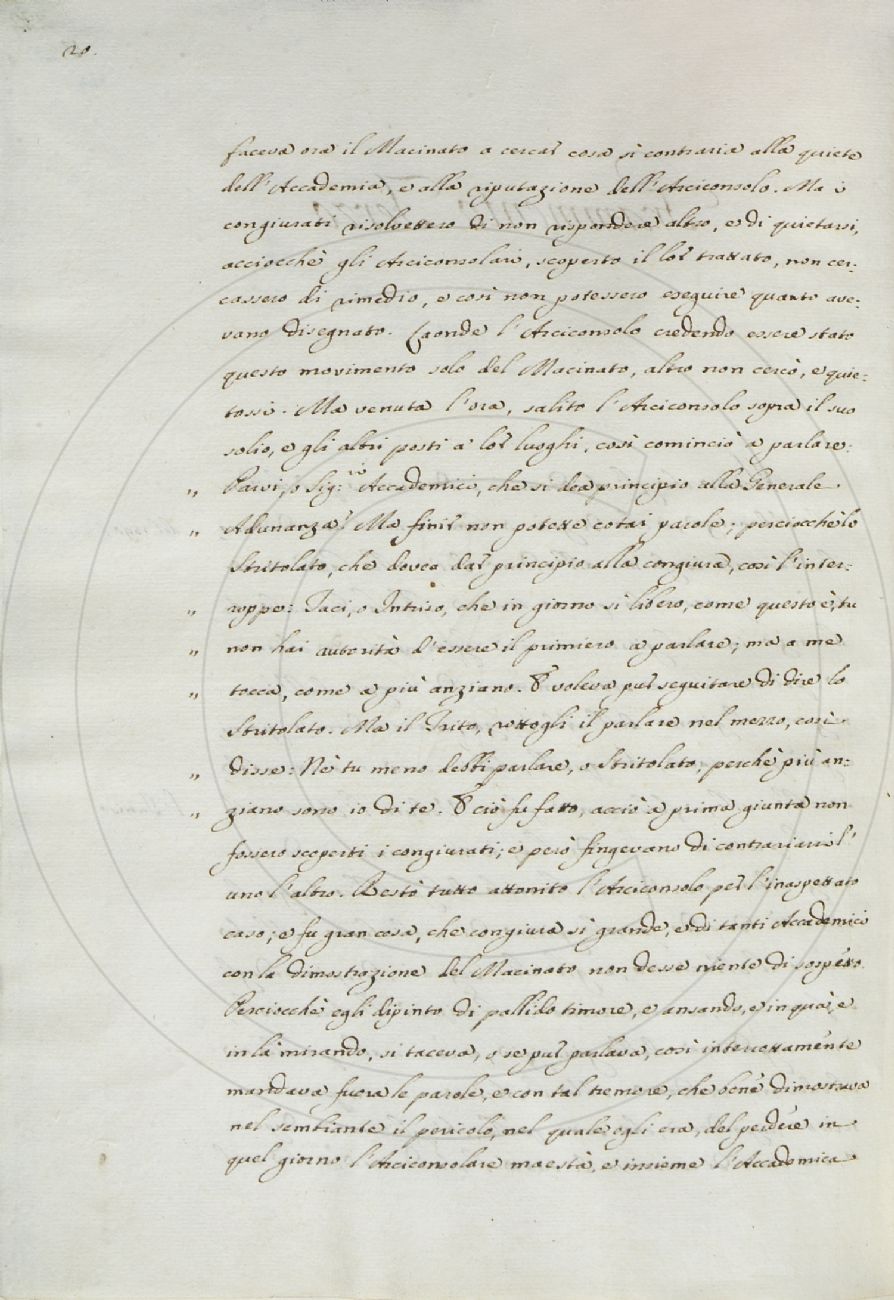 20.
faceva ora il Macinato a cercar cosa sì contraria alla quiete
dell'Accademia, e alla riputazione dell'Arciconsolo. Ma i
congiurati risolvettero di non rispondere altro, e di quietarsi,
acciocchè gli Arciconsolari, scoperto il lor trattato, non cer:
cassero di rimedio, e così non potessero eseguire quanto ave:
vano disegnato. Laonde l'Arciconsolo credendo essere stato
questo movimento solo del Macinato, altro non cercò, e quie:
tossi. Ma venuta l'ora, salito l'Arciconsolo sopra il suo
solio, e gli altri posti a' lor luoghi, così cominciò a parlare:
„ Parvi, o Sig:ri Accademici, che si dea principio alla Generale
„ Adunanza? Ma finir non potette cotai parole; perciocchè lo
Stritolato, che dovea dar principio alla congiura, così l'inter:
„ roppe: Taci, o Intriso, che in giorno sì libero, come questo è, tu
„ non hai autorità d'essere il primiero a parlare; ma a me
„ tocca, come a più anziano. E voleva pur seguitare di dire lo
Stritolato. Ma il Trito, rottogli il parlare nel mezzo, così
„ disse: Nè tu meno debbi parlare, o Stritolato, perchè più an:
„ ziano sono io di te. E ciò fu fatto, acciò a prima giunta non
fossero scoperti i congiurati; e però fingevano di contrariarsi l'
uno l'altro. Restò tutto attonito l'Arciconsolo per l'inaspettato
caso; e fu gran cosa, che congiura sì grande, e di tanti Accademici
con la dimostrazione del Macinato non desse niente di sospetto.
Perciocchè egli dipinto di pallido timore, e ansando, e in quà, e
in là mirando, si taceva, o se pur parlava, così interrottamente
mandava fuora le parole, e con tal tremore, che bene dimostrava
nel sembiante il pericolo, nel quale egli era, del perdere in
quel giorno l'Arciconsolare maestà, e insieme l'Accademica